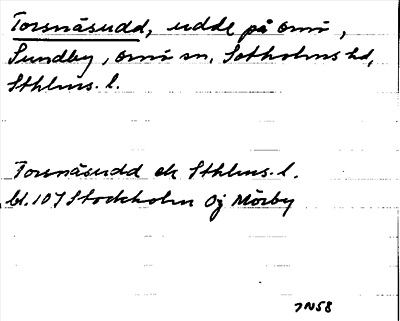 Torsnäsudd, udde på Ornö,
Sundby, Ornö sn, Sotholms hd,
Sthlms. l.
Torsnäsudd ek Sthlms. l.
bl. 107 Stockholm Oj Mörby
JN58